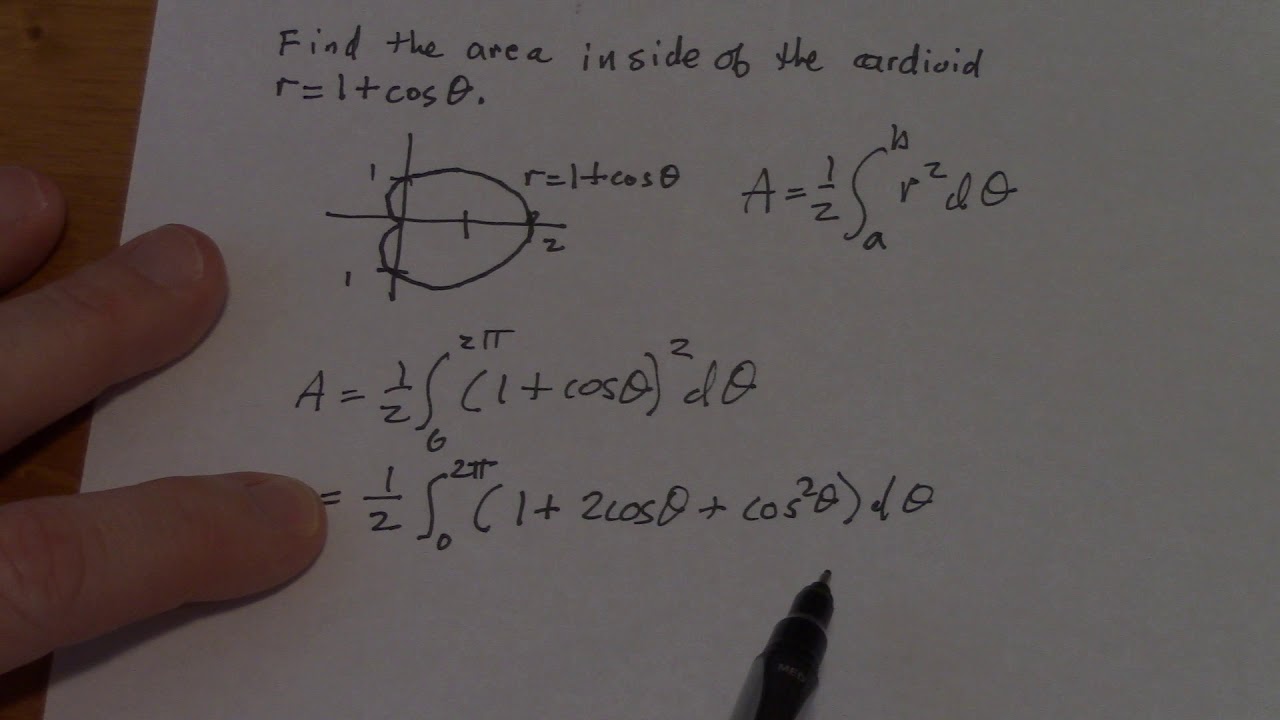 Find the area inside of the cardioid
r=1+cosθ.
1
r=1+cosθ
2
1
A=½∫ₐᵇ r²dθ
A=½∫₀²π (1+cosθ)²dθ
=½∫₀²π (1+2cosθ+cos²θ)dθ
MED